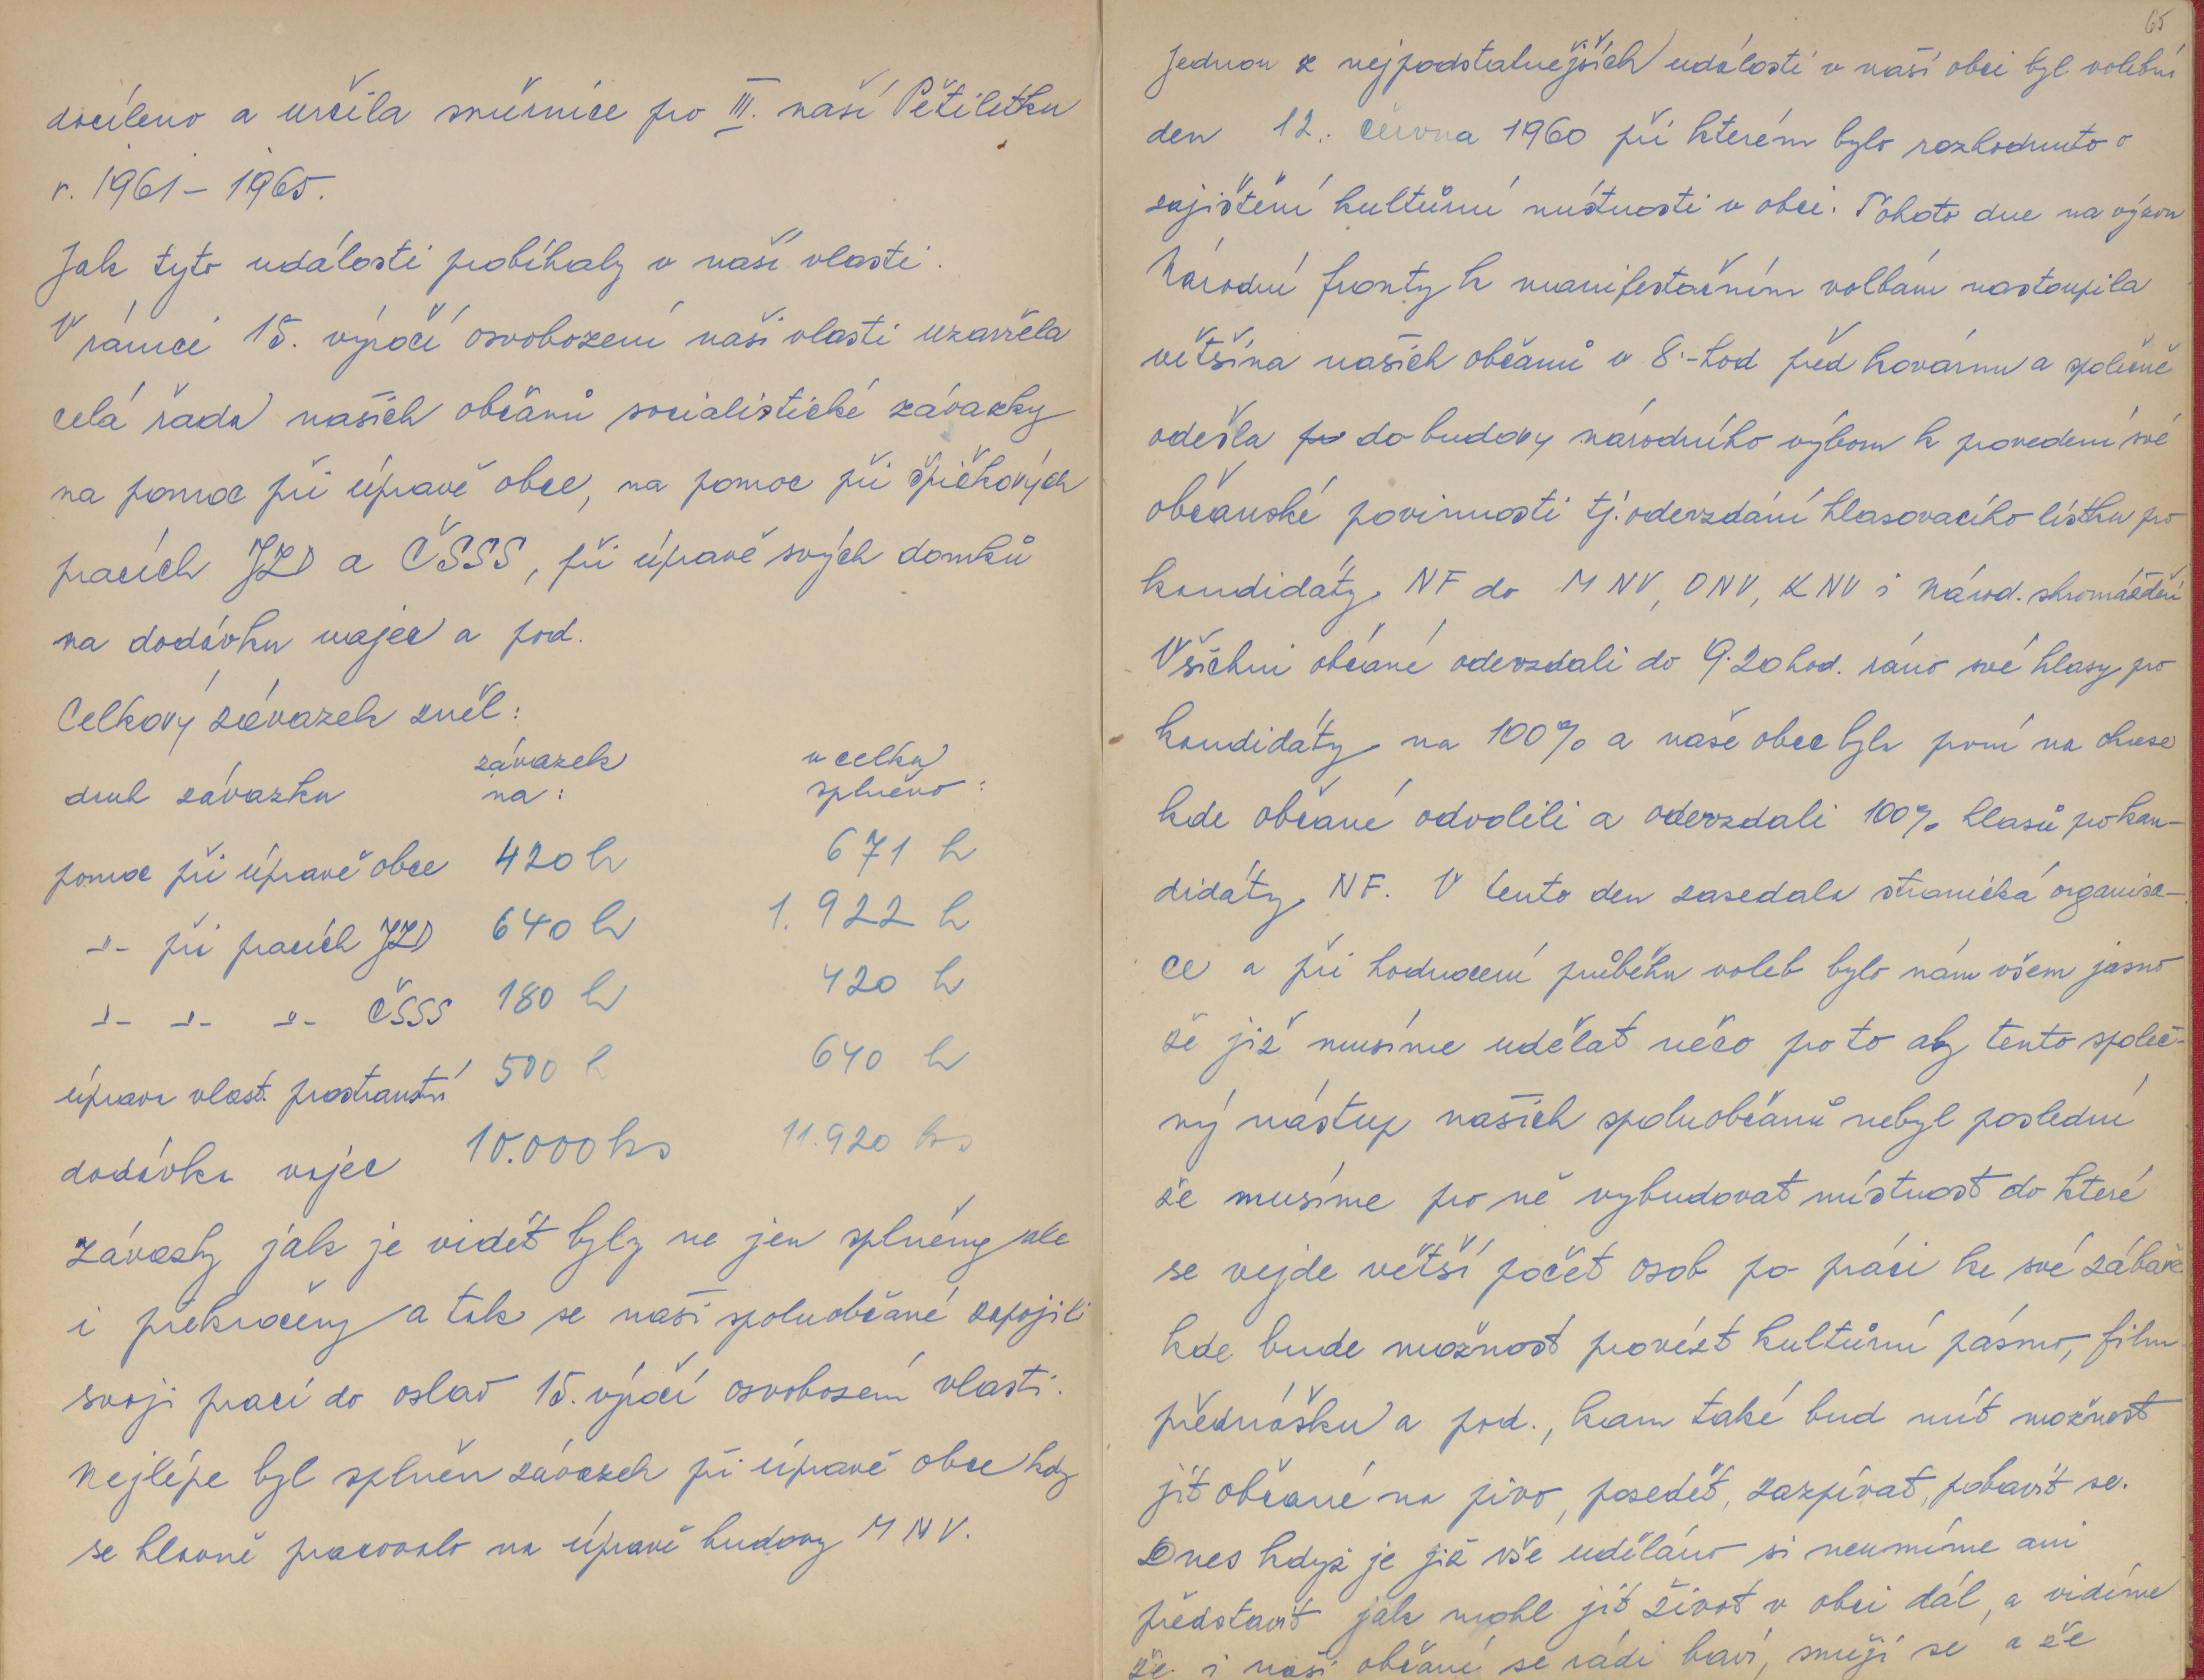 docíleno a určila směrnice pro III. naší Pětiletku
r. 1961 – 1965.
Jak tyto události probíhaly v naší vlasti.
V rámci 15. výročí osvobození naši vlasti uzavřela
celá řada našich občanů socialistické závazky
na pomoc při úpravě obce, na pomoc při špičkových
pracích JZD a ČSSS, při úpravě svých domků
na dodávku vajec a pod.
Celkový závazek zněl:
druh závazku závazek na: v celku splněno:
pomoc při úpravě obce 420 h 671 h
-"- při pracích JZD 640 h 1.922 h
-"- -"- -"- ČSSS 180 h 420 h
úprava vlast. prostranství 500 h 640 h
dodávka vajec 10.000 ks 11.920 ks
Závazky jak je vidět byly ne jen splněny ale
i překročeny a tak se naši spoluobčané zapojili
svoji prací do oslav 15. výročí osvobození vlasti.
Nejlépe byl splněn závazek při úpravě obce kdy
se hlavně pracovalo na úpravě budovy MNV.
65
Jednou z nejpodstatnějších událostí v naší obci byl volební
den 12. června 1960 při kterém bylo rozhodnuto o
zajištění kultůrní místnosti v obci. Tohoto dne na výzvu
Národní fronty k manifestačním volbám nastoupila
většina našich občanů v 8.-hod před kovárnu a společně
odešla do budovy národního výboru k provedení své
občanské povinnosti tj. odevzdání hlasovacího lístku pro
kandidáty NF do MNV, ONV, KNV i Národ. shromáždění
Všichni občané odevzdali do 9.20 hod. ráno své hlasy pro
kandidáty na 100% a naše obec byla první na okrese
kde občané odvolili a odevzdali 100% hlasů pro kan-
didáty NF. V tento den zasedala stranická organisa-
ce a při hodnocení průběhu voleb bylo nám všem jasno
že již musíme udělat něco pro to aby tento společ-
ný nástup našich spoluobčanů nebyl poslední
že musíme pro ně vybudovat místnost do které
se vejde větší počet osob po práci ke své zábavě
kde bude možnost provést kultůrní pásmo, film
přednášku a pod., kam také bud mít možnost
jít občané na pivo, posedět, zazpívat, pobavit se.
Dnes když je již vše uděláno si neumíme ani
představit jak mohl jít život v obci dál, a vidíme
že i naši občané se rádi baví, smějí se a že